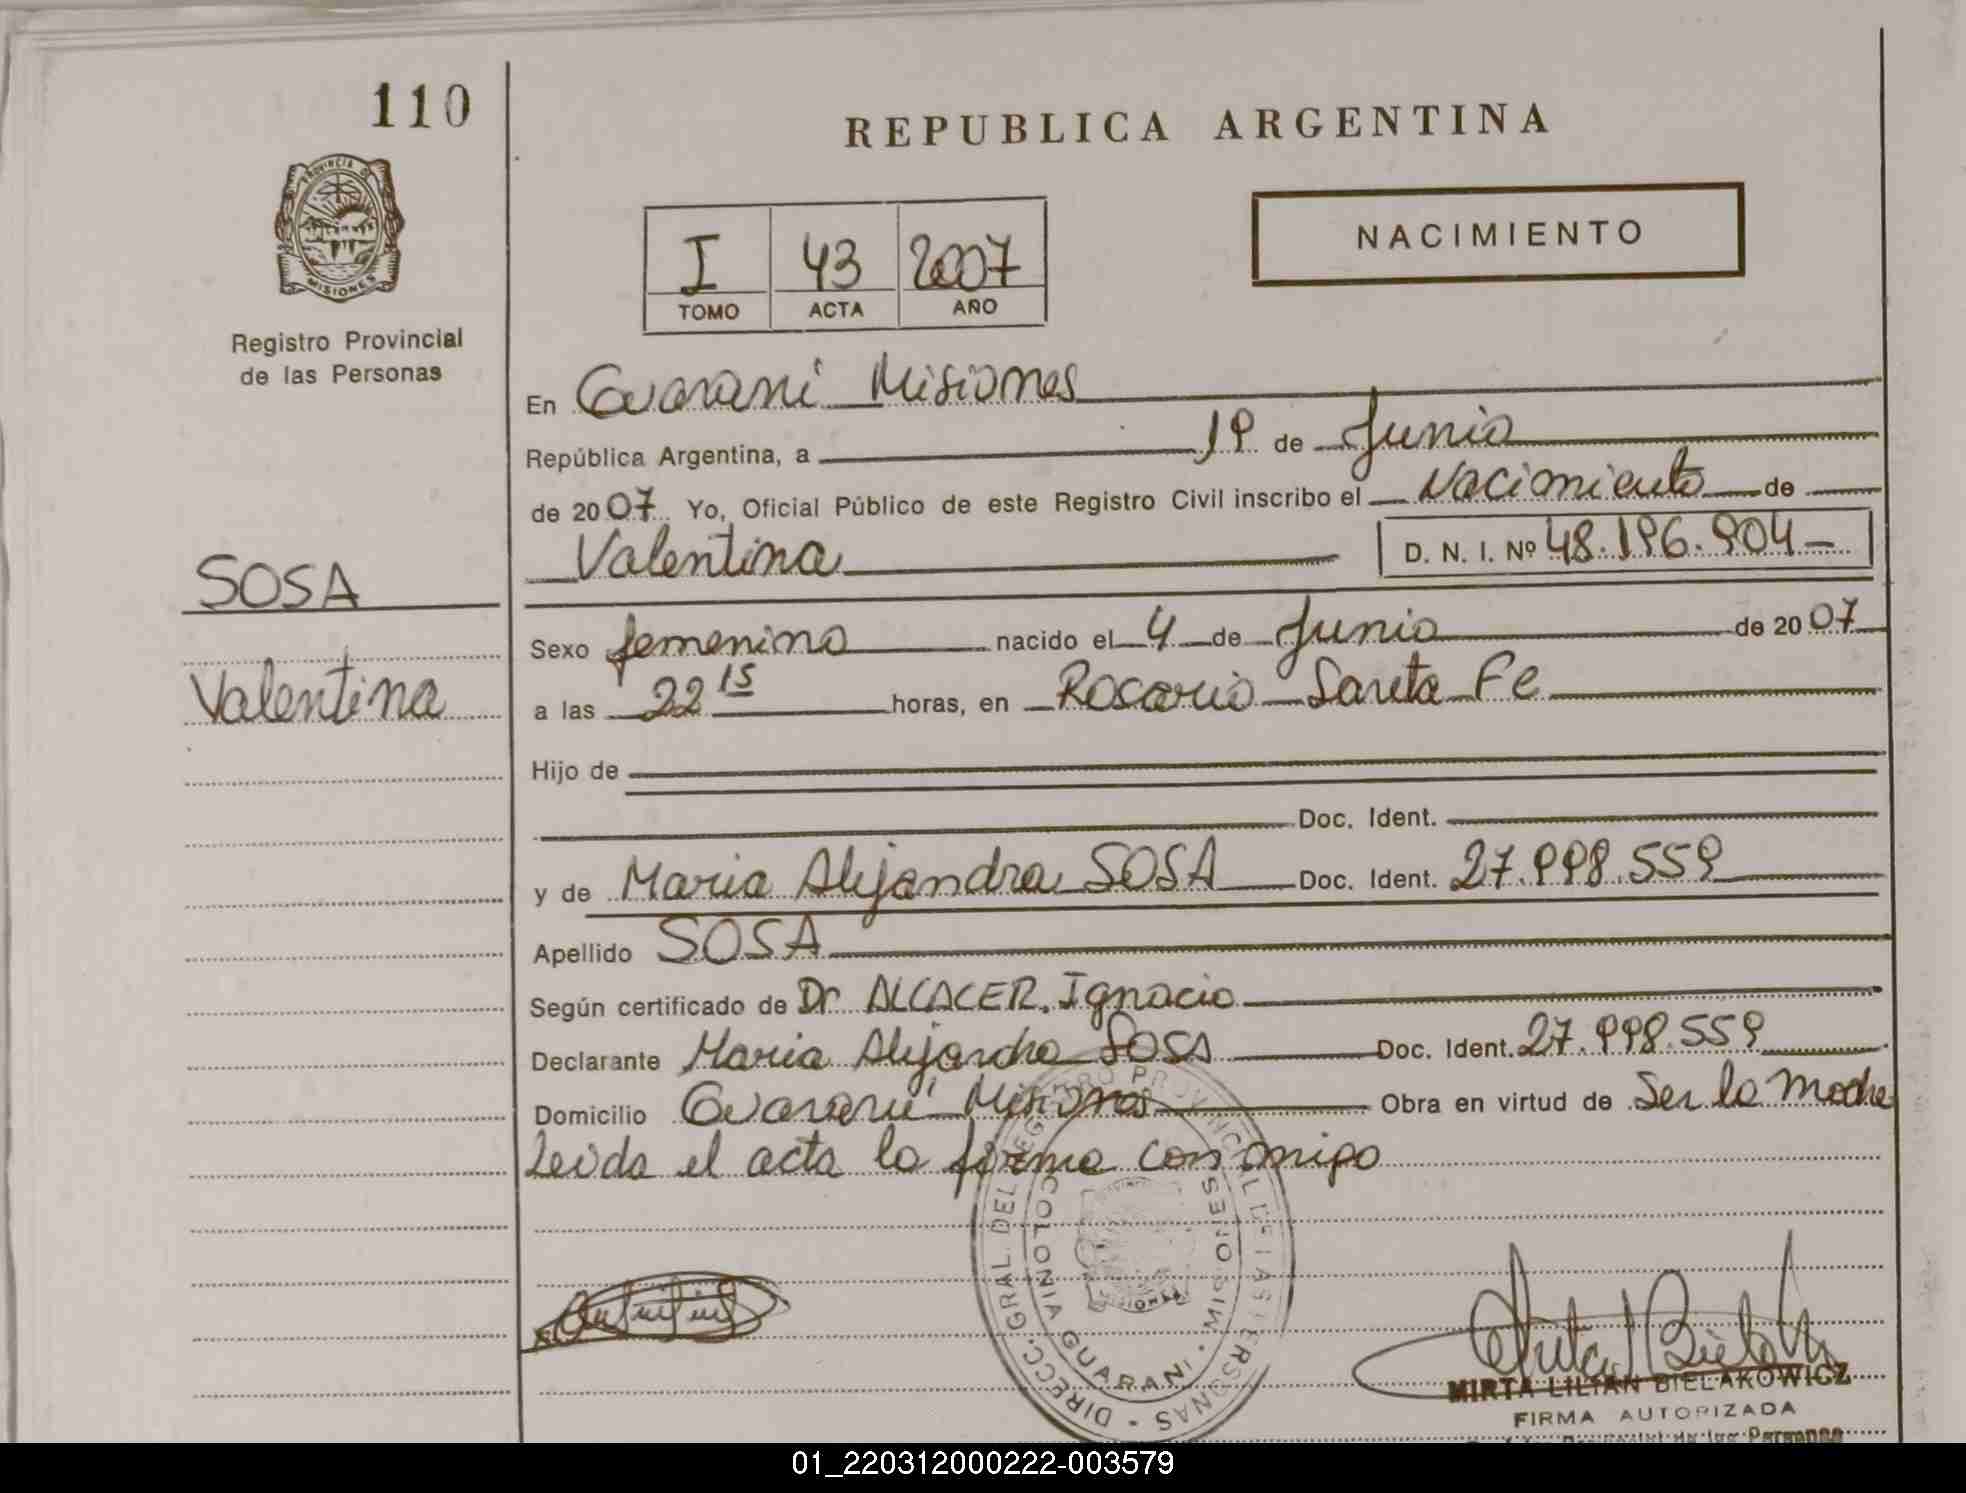 110
REPUBLICA ARGENTINA
PROVINCIA DE
MISIONES
Registro Provincial
de las Personas
I 43 2007
TOMO ACTA AÑO
NACIMIENTO
En Guarani Misiones
República Argentina, a 19 de Junio
de 2007 Yo, Oficial Público de este Registro Civil inscribo el Nacimiento de
Valentina D. N. I. Nº 48.196.904
SOSA
Valentina
Sexo femenino nacido el 4 de Junio de 2007
a las 22 15 horas, en Rosario Santa Fe
Hijo de
Doc. Ident.
y de Maria Alejandra SOSA Doc. Ident. 27.998.559
Apellido SOSA
Según certificado de Dr ALCACER, Ignacio
Declarante Maria Alejandra Sosa Doc. Ident. 27.998.559
Domicilio Guarani Misiones Obra en virtud de Ser la Madre
Leida el acta la firma conmigo
DIRECC. GRAL. DEL REGISTRO PROVINCIAL DE LAS PERSONAS
COLONIA GUARANI - MISIONES
MIRTA LILIAN BIELAKOWICZ
FIRMA AUTORIZADA
01_220312000222-003579